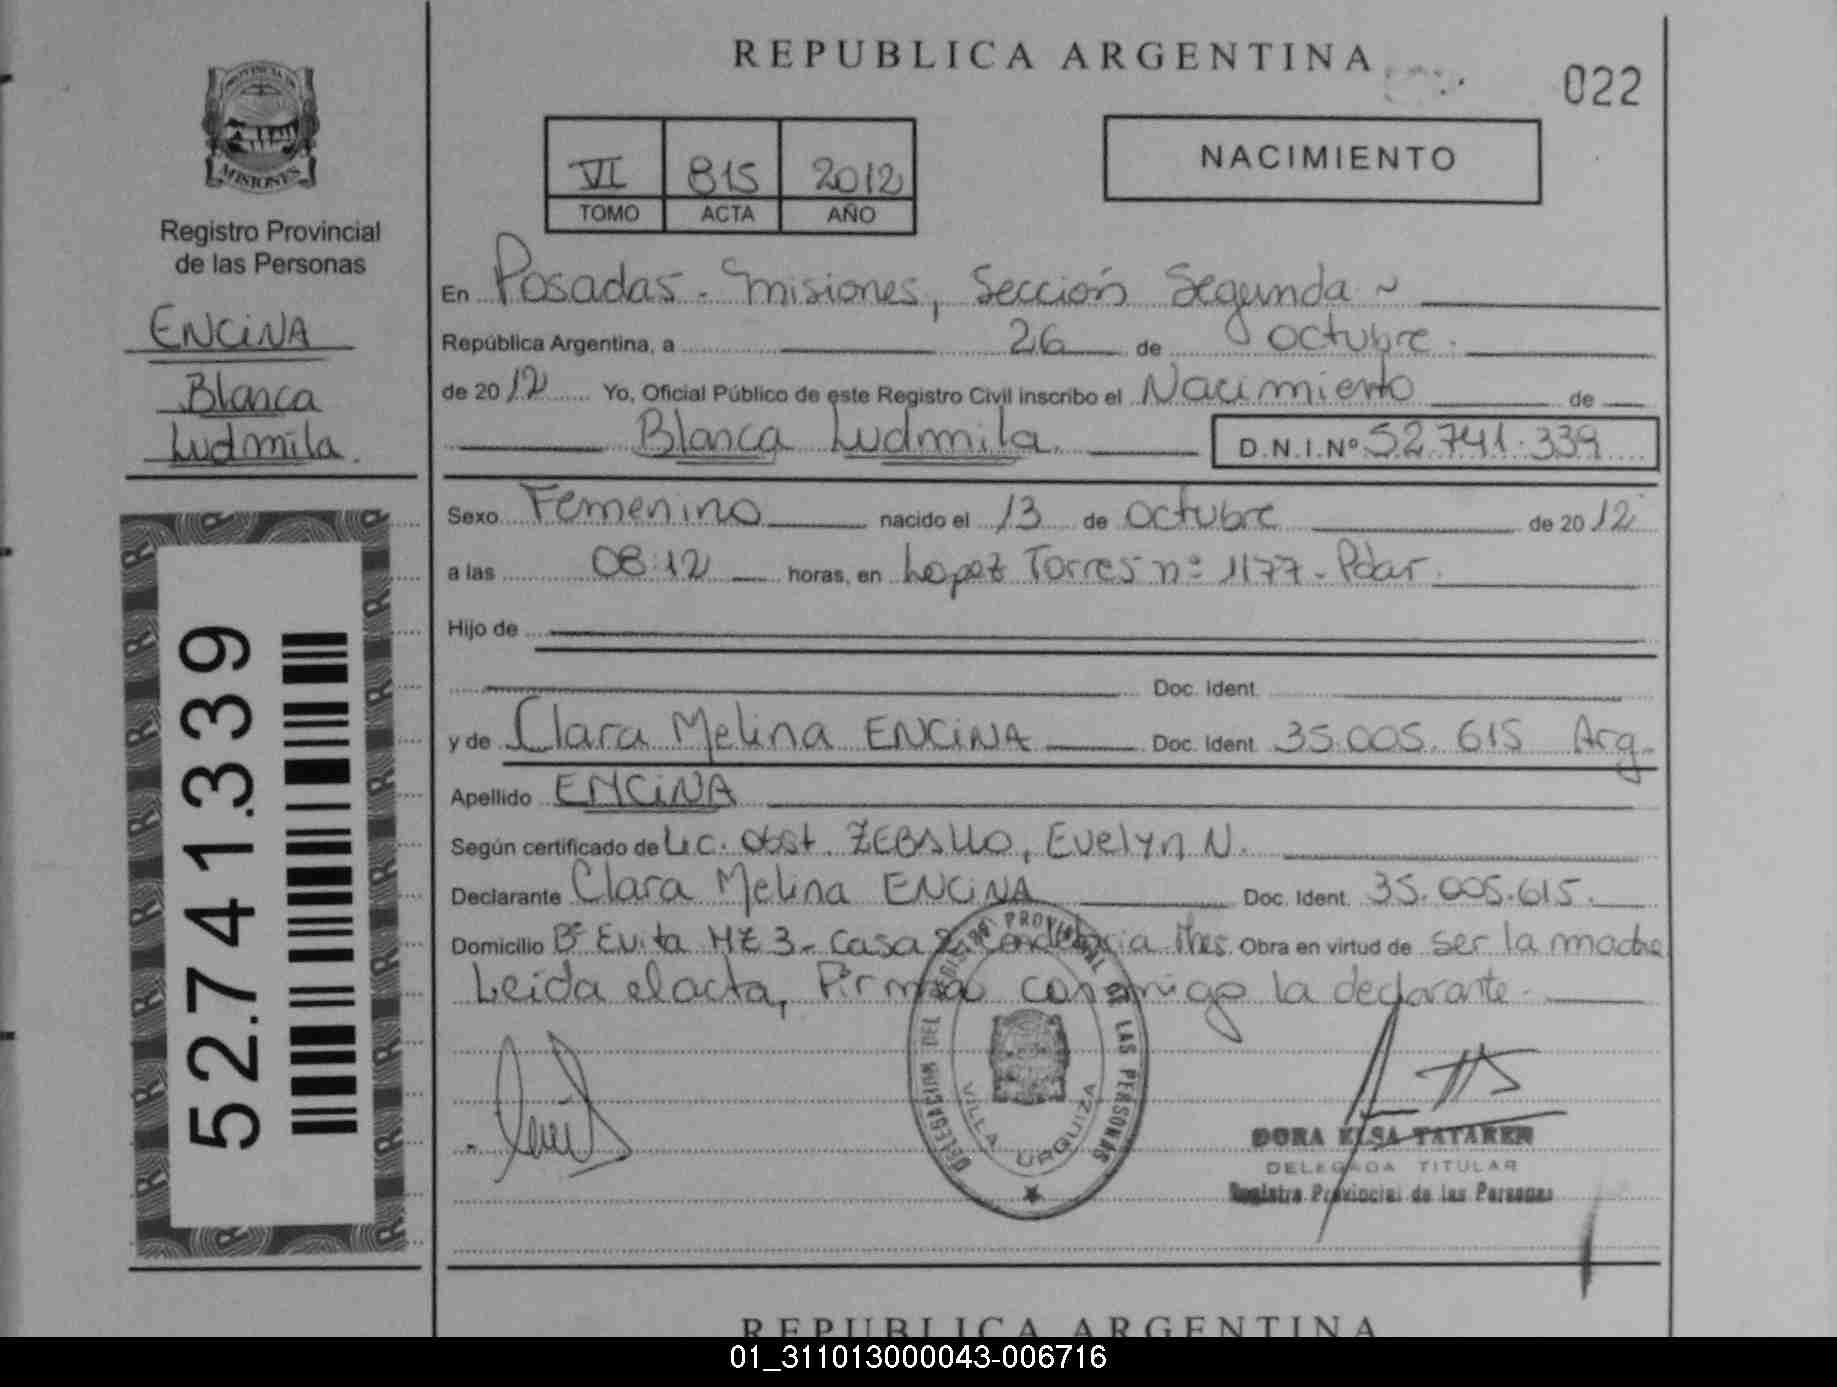 REPUBLICA ARGENTINA
022
PROVINCIA DE
MISIONES
Registro Provincial
de las Personas
ENCINA
Blanca
Ludmila.
52.741.339
VI 815 2012
TOMO ACTA AÑO
NACIMIENTO
En Posadas - Misiones, Sección Segunda ~
República Argentina, a 26 de octubre.
de 2012 Yo, Oficial Público de este Registro Civil inscribo el Nacimiento de
Blanca Ludmila. D.N.I.Nº 52.741.339
Sexo Femenino nacido el 13 de octubre de 2012
a las 08:12 horas, en Lopez Torres nº 1177 - Pdas.
Hijo de
Doc. Ident.
y de Clara Melina ENCINA Doc. Ident. 35.005.615 Arg
Apellido ENCINA
Según certificado de Lic. Obst. Evelyn N.
Declarante Clara Melina ENCINA Doc. Ident. 35.005.615.
Domicilio Bº Evita MZ 3 - Casa 2 Candelaria Mnes. Obra en virtud de ser la madre
Leida el acta, Firma conmigo la declarante.
DELEGACION DEL REGISTRO PROVINCIAL DE LAS PERSONAS
VILLA URQUIZA
DORA ELSA TATAREN
DELEGADA TITULAR
Registro Provincial de las Personas
REPUBLICA ARGENTINA
01_311013000043-006716